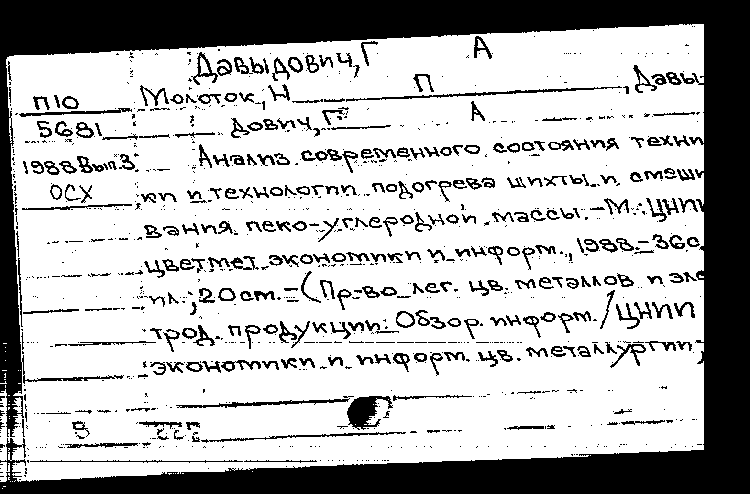 Давыдович, Г А
П10 Молоток, Н П , Давы-
5681 дович, Г А
1988 Вып.3 Анализ современного состояния техни
ОСХ ки и технологии подогрева шихты и смеши
вания пеко-углеродной массы. - М.: ЦНИИ
цветмет экономики и информ., 1988. - 36 с.
ил.; 20 cm. - (Пр-во лег. цв. металлов и элек
трод. продукции: Обзор. информ. / ЦНИИ
экономики и информ. цв. металлургии;